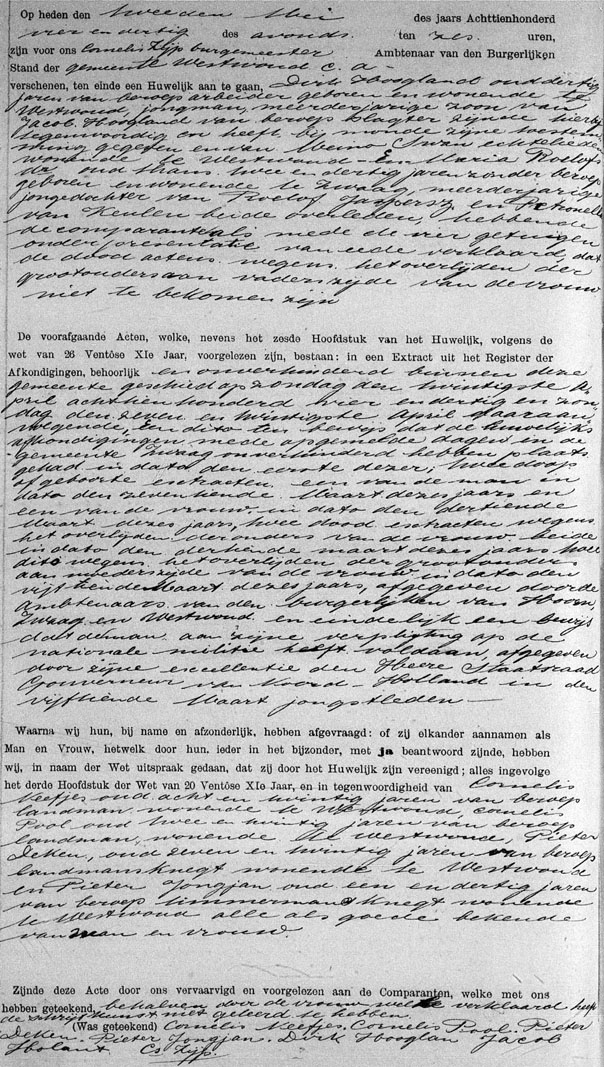 Op heden den tweeden Mei des jaars Achttienhonderd
vier en dertig des avonds ten zes uren,
zijn voor ons Cornelis Zijp burgemeester Ambtenaar van den Burgerlijken
Stand der gemeente Westwoud c. a.
verschenen, ten einde een Huwelijk aan te gaan, Dirk Hoogland oud dertig
jaren van beroep arbeider geboren en wonende te
Westwoud jongman, meerderjarige zoon van
Jacob Hoogland van beroep slagter zijnde hierbij
tegenwoordig en heeft bij monde zijne toestem
ming gegeven en van Meino Swan echtelieden
wonende te Westwoud - En Maria Roelofs
oud thans twee en dertig jaren zonder beroep
geboren en wonende te Zwaag, meerderjarige
jongedochter van Roelof Jaspersz en Petronella
van Keulen beide overleden, hebbende
de comparanten als mede de vier getuigen
onder presentatie van eede verklaard, dat
de dood actens wegens het overlijden der
grootouders aan vaderszijde van de vrouw
niet te bekomen zijn
De voorafgaande Acten, welke, nevens het zesde Hoofdstuk van het Huwelijk, volgens de
wet van 26 Ventôse XIe Jaar, voorgelezen zijn, bestaan: in een Extract uit het Register der
Afkondigingen, behoorlijk en onverhinderd binnen deze
gemeente geschied op zondag den twintigste A
pril achttien honderd vier en dertig en zon
dag den zeven en twintigste April daaraan
volgende, Een dito ten bewijs dat de huwelijks
afkondigingen mede opgemelde dagen in de
gemeente Zwaag onverhinderd hebben plaats
gehad in dato den eerste dezer; twee doop
of geboorte extracten een van de man in
dato den zeventiende Maart dezes jaars en
een van de vrouw in dato den dertiende
Maart dezes jaars, twee dood extracten wegens
het overlijden der ouders van de vrouw beide
in dato den dertiende maart dezes jaars twee
dito wegens het overlijden der grootouders
aan moederszijde van de vrouw in dato den
vijftiende Maart dezes jaars, afgegeven door de
ambtenaars van den burgerlijken van Hoorn,
Zwaag en Westwoud en eindelijk een bewijs
dat de man aan zijne verpligting op de
nationale militie heeft voldaan, afgegeven
door zijne excellentie den Heere Staatsraad
Gouverneur van Noord-Holland in den
vijftiende Maart jongstleden
Waarna wij hun, bij name en afzonderlijk, hebben afgevraagd: of zij elkander aannamen als
Man en Vrouw, hetwelk door hun. ieder in het bijzonder, met ja beantwoord zijnde, hebben
wij, in naam der Wet uitspraak gedaan, dat zij door het Huwelijk zijn vereenigd; alles ingevolge
het derde Hoofdstuk der Wet van 20 Ventôse XIe Jaar, en in tegenwoordigheid van Cornelis
Neefjes oud acht en twintig jaren van beroep
landman wonende te Westwoud, Cornelis
Pool oud twee en twintig jaren van beroep
landman, wonende te Westwoud Pieter
Deken, oud zeven en twintig jaren van beroep
landmansknegt wonende te Westwoud
en Pieter Jongjan oud een en dertig jaren
van beroep timmermansknegt wonende
te Westwoud alle als goede bekende
van man en vrouw.
Zijnde deze Acte door ons vervaarvigd en voorgelezen aan de Comparanten, welke met ons
hebben geteekend, behalven door de vrouw welke verklaard heeft
de schrijfkunst niet geleerd te hebben.
(Was geteekend) Cornelis Neefjes. Cornelis Pool. Pieter
Deken. Pieter Jongjan. Dirk Hooglan Jacob
Holant Cs Zijp.